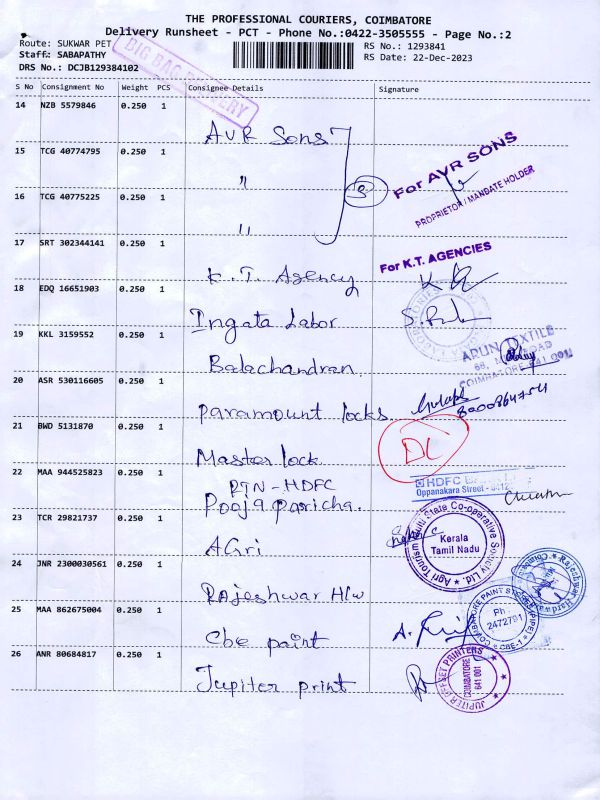 THE PROFESSIONAL COURIERS, COIMBATORE
Delivery Runsheet - PCT - Phone No.:0422-3505555 - Page No.:2
Route: SUKWAR PET
RS No.: 1293841
Staff: SABAPATHY
RS Date: 22-Dec-2023
DRS No.: DCJB129384102
BIG BAG DELIVERY
S No Consignment No Weight PCS Consignee Details Signature
14 NZB 5579846 0.250 1 AVR Sons
15 TCG 40774795 0.250 1 "
For AVR SONS
PROPRIETOR / MANDATE HOLDER
16 TCG 40775225 0.250 1 "
17 SRT 302344141 0.250 1 K.T. Agency
For K.T. AGENCIES
18 EDQ 16651903 0.250 1 Ingata Labor
19 KKL 3159552 0.250 1 Balachandran
ARUN TEXTILE
COIMBATORE-641 001
20 ASR 530116605 0.250 1 Paramount locks
21 BWD 5131870 0.250 1 Master lock
DL
22 MAA 944525823 0.250 1 RTN - HDFC
Pooja Paricha.
HDFC
Oppanakara Street - 0412
23 TCR 29821737 0.250 1 AGri
Agri Tourism Multi State Co-operative Society Ltd.
Kerala
Tamil Nadu
24 JNR 2300030561 0.250 1 Rajeshwar H/w
Rajeshwar Hardware
25 MAA 862675004 0.250 1 Cbe paint
COIMBATORE PAINT STORES (PIPE)
Ph:
2472791
CBE-1
26 ANR 80684817 0.250 1 Jupiter print
JUPITER OFFSET PRINTERS
COIMBATORE
641 001